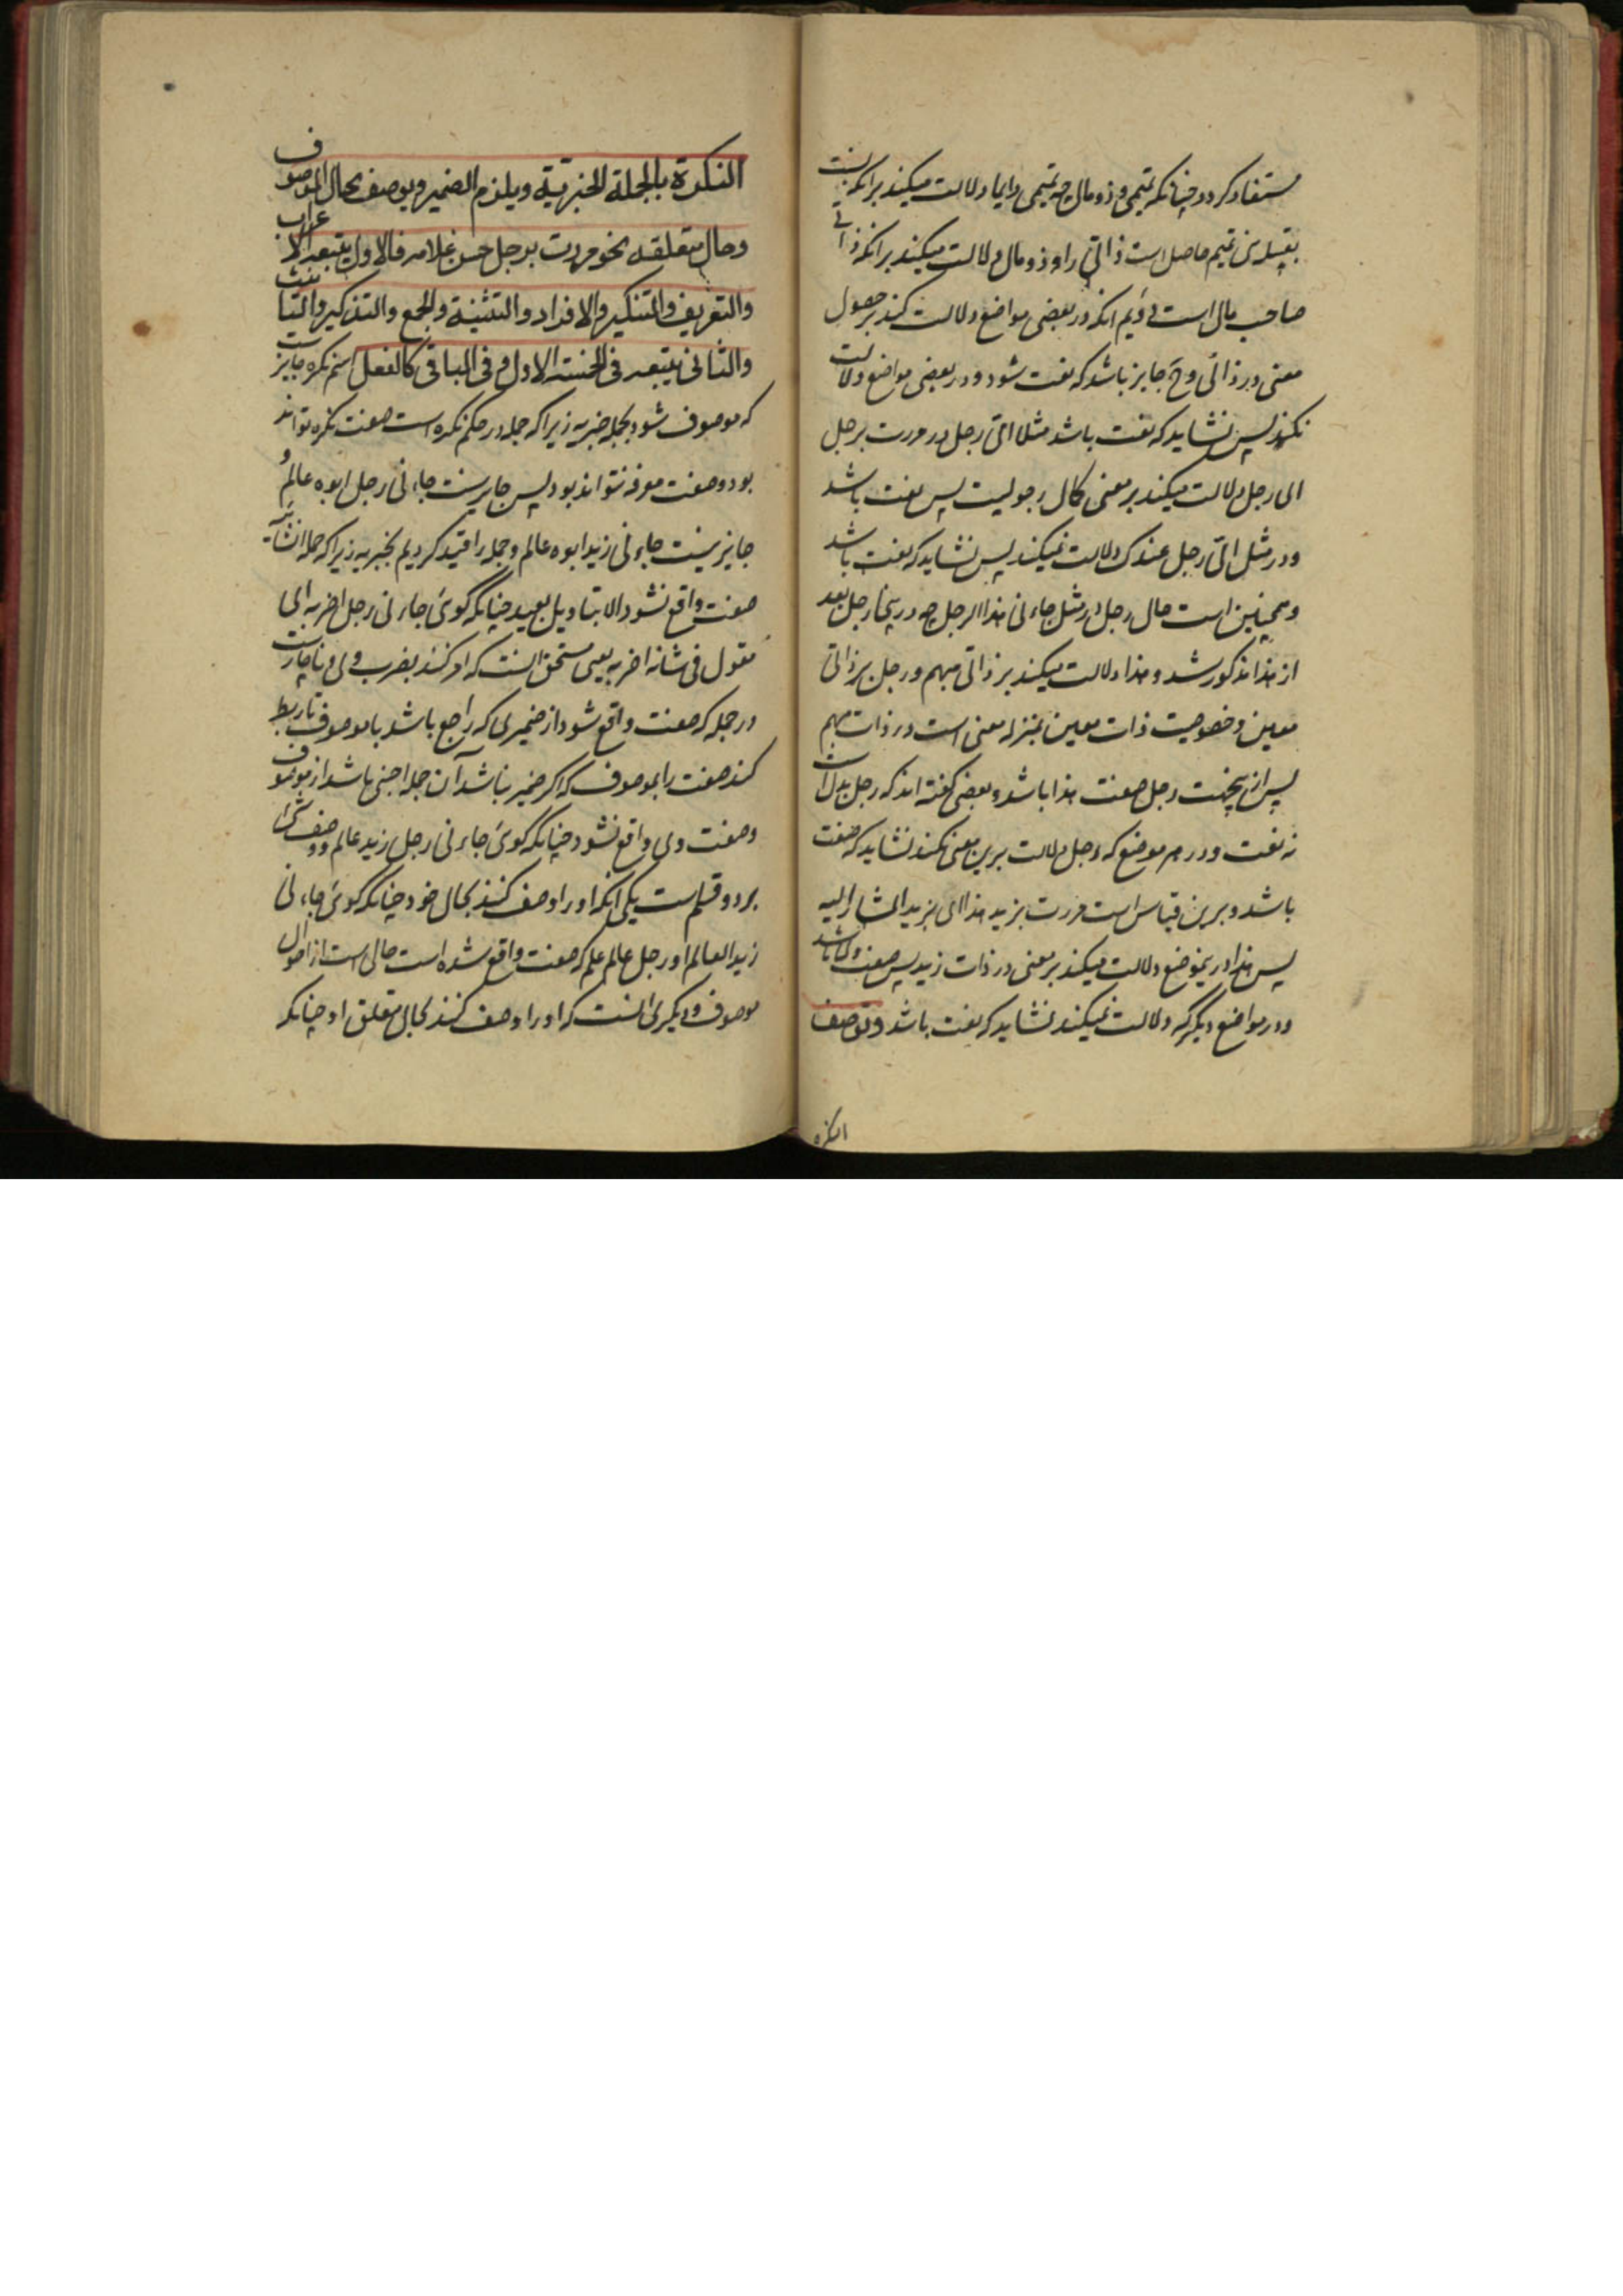 مستفاد کردد چنانکه تمیمی و ذو مال چه تمیمی دایما دلالت میکند برانکه نسبت
بقبیله بنی تمیم حاصل است ذاتی را و ذو مال دلالت میکند برانکه ذاتی
صاحب مال است دویم انکه در بعضی مواضع دلالت کند بر حصول
معنی در ذاتی و ح جایز باشد که نعت شود و در بعضی مواضع دلالت
نکند پس نشاید که نعت باشد مثلا ای رجل در مررت برجل
ای رجل دلالت میکند بر معنی کمال رجولیت پس نعت باشد
و در مثل ای رجل عندک دلالت نمیکند پس نشاید که نعت باشد
و همچنین است حال رجل در مثل جاءنی هذا الرجل چه درینجا رجل بعد
از هذا مذکور شد و هذا دلالت میکند بر ذاتی مبهم و رجل بر ذاتی
معین و خصوصیت ذات معین بمنزله معنی است در ذات مبهم
پس ازین جهت رجل صفت هذا باشد و بعضی گفته اند که رجل بدل است
نه نعت و در هر موضع که رجل دلالت برین معنی نکند نشاید که صفت
باشد و برین قیاس است مررت بزید هذا ای بزید المشار الیه
پس هذا درین موضع دلالت میکند بر معنی در ذات زید پس صفت وی باشد
و در مواضع دیگر که دلالت نمیکند نشاید که نعت باشد وتوصف
النکره
النكرة بالجملة الخبرية ويلزم الضمير ويوصف بحال الموصوف
وحال متعلقه نحو مررت برجل حسن غلامه فالاول يتبعه في الاعراب
والتعريف والتنكير والافراد والتثنية والجمع والتذكير والتانيث
والثاني يتبعه في الخمسة الاول وفي الباقي كالفعل اسم نکره جایز است
که موصوف شود بجمله خبریه زیرا که جمله در حکم نکره است صفت نکره تواند
بود و صفت معرفه نتواند بود پس جایز نیست جاءنی رجل ابوه عالم و
جایز نیست جاءنی زید ابوه عالم و جمله را قید کردیم بخبریه زیرا که جمله انشائیه
صفت واقع نشود الا بتاویل بعید چنانکه گوئی جاءنی رجل اضربه ای
مقول فی شانه اضربه یعنی مستحق انست که امر کنند بضرب وی و ناچارست
در جمله که صفت واقع شود از ضمیری که راجع باشد با موصوف تا ربط
کند صفت را بموصوف که اگر ضمیر نباشد آن جمله اجنبی باشد از موصوف
و صفت وی واقع نشود چنانکه گوئی جاءنی رجل زید عالم و وصف
بر دو قسم است یکی انکه او را وصف کنند بحال خود چنانکه گوئی جاءنی
زید العالم او رجل عالم علم که صفت واقع شده است حالی است از احوال
موصوف و دیگری انست که او را وصف کنند بحال متعلق او چنانکه